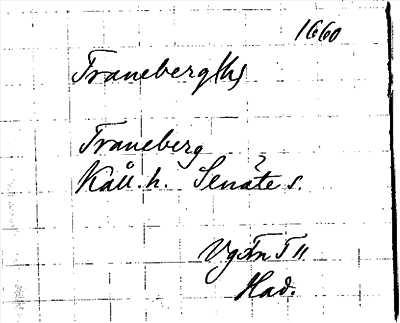 1660
Traneberg(h)
Traneberg
Kåll. h. Senäte s.
VgFmT 11
Had.